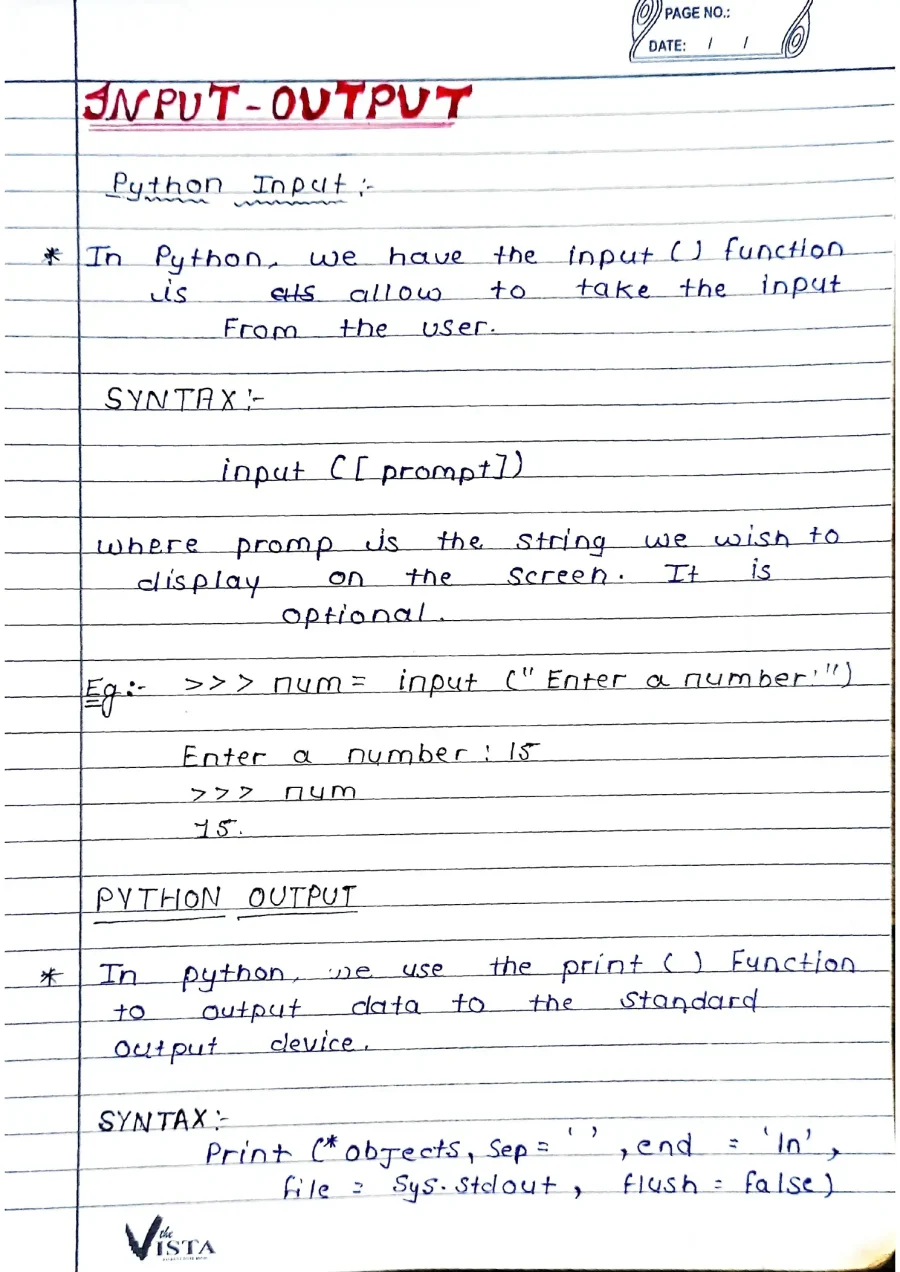 PAGE NO.:
DATE: / /
INPUT-OUTPUT
Python Input :-
* In Python, we have the input ( ) function
is allow to take the input
From the user.
SYNTAX :-
input ([ prompt])
where promp is the string we wish to
display on the screen. It is
optional.
Eg :- >>> num = input (" Enter a number:")
Enter a number : 15
>>> num
15.
PYTHON OUTPUT
* In python, we use the print ( ) Function
to output data to the standard
output device.
SYNTAX :-
Print (* objects, Sep = ' ' , end = 'ln' ,
file = Sys. Stdout , flush = false)
the
VISTA